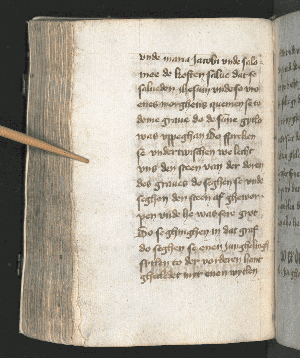 vnde maria Jacobi vnde salo
mee de kosten salue dat se
salueden ihesum vnde so vro
enes morghens quemen se to
deme graue do de sunne
was vpghegan do spreken
se vnder twischen we licht
vns den steen van der doren
des graues do seghen se vnde
seghen den steen af ghewor
pen vnde he was sere grot
Do se ghinghen in dat graf
do seghen se enen Junghelingk
sitten to der vorderen hant
ghecledet mit enen witten